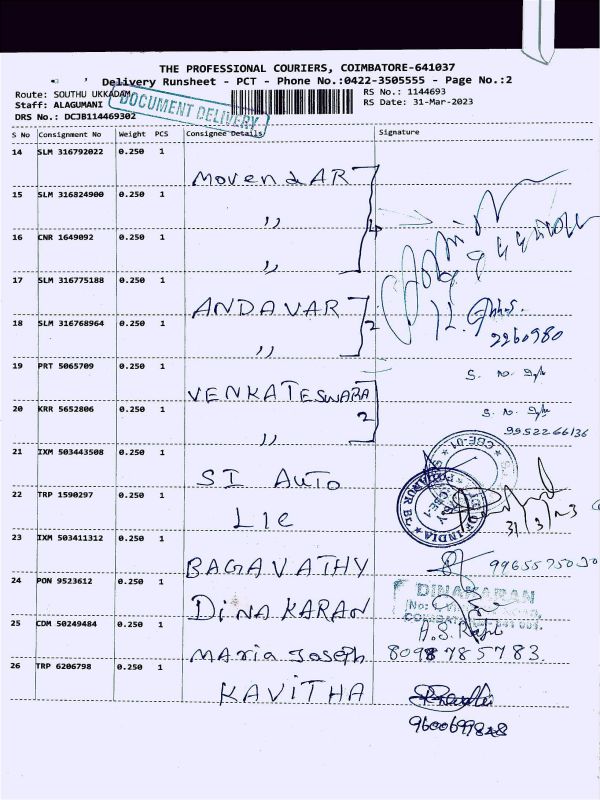 THE PROFESSIONAL COURIERS, COIMBATORE-641037
Delivery Runsheet - PCT - Phone No.:0422-3505555 - Page No.:2
Route: SOUTHU UKKADAM
RS No.: 1144693
Staff: ALAGUMANI
RS Date: 31-Mar-2023
DRS No.: DCJB114469302
DOCUMENT DELIVERY
S No Consignment No Weight PCS Consignee Details Signature
14 SLM 316792022 0.250 1 MovendAR
15 SLM 316824900 0.250 1 ,,
16 CNR 1649092 0.250 1 ,,
17 SLM 316775188 0.250 1 ANDAVAR 2
18 SLM 316768964 0.250 1 ,,
2260980
19 PRT 5065709 0.250 1 VENKATESWARA 2
20 KRR 5652806 0.250 1 ,,
9952266136
21 IXM 503443508 0.250 1 SI AUTO
22 TRP 1590297 0.250 1 LIC
31/3/23
23 IXM 503411312 0.250 1 BAGAVATHY
24 PON 9523612 0.250 1 DINAKARAN
DINAKARAN
25 CDM 50249484 0.250 1 MARIA JOSEPH 8098785783.
26 TRP 6206798 0.250 1 KAVITHA